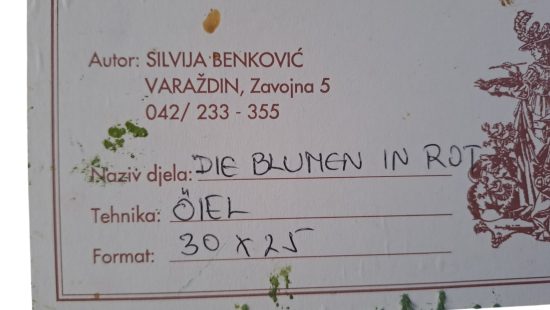 Autor: SILVIJA BENKOVIĆ
VARAŽDIN, Zavojna 5
042/ 233 - 355
Naziv djela: DIE BLUMEN IN ROT
Tehnika: ÖIEL
Format: 30 x 25